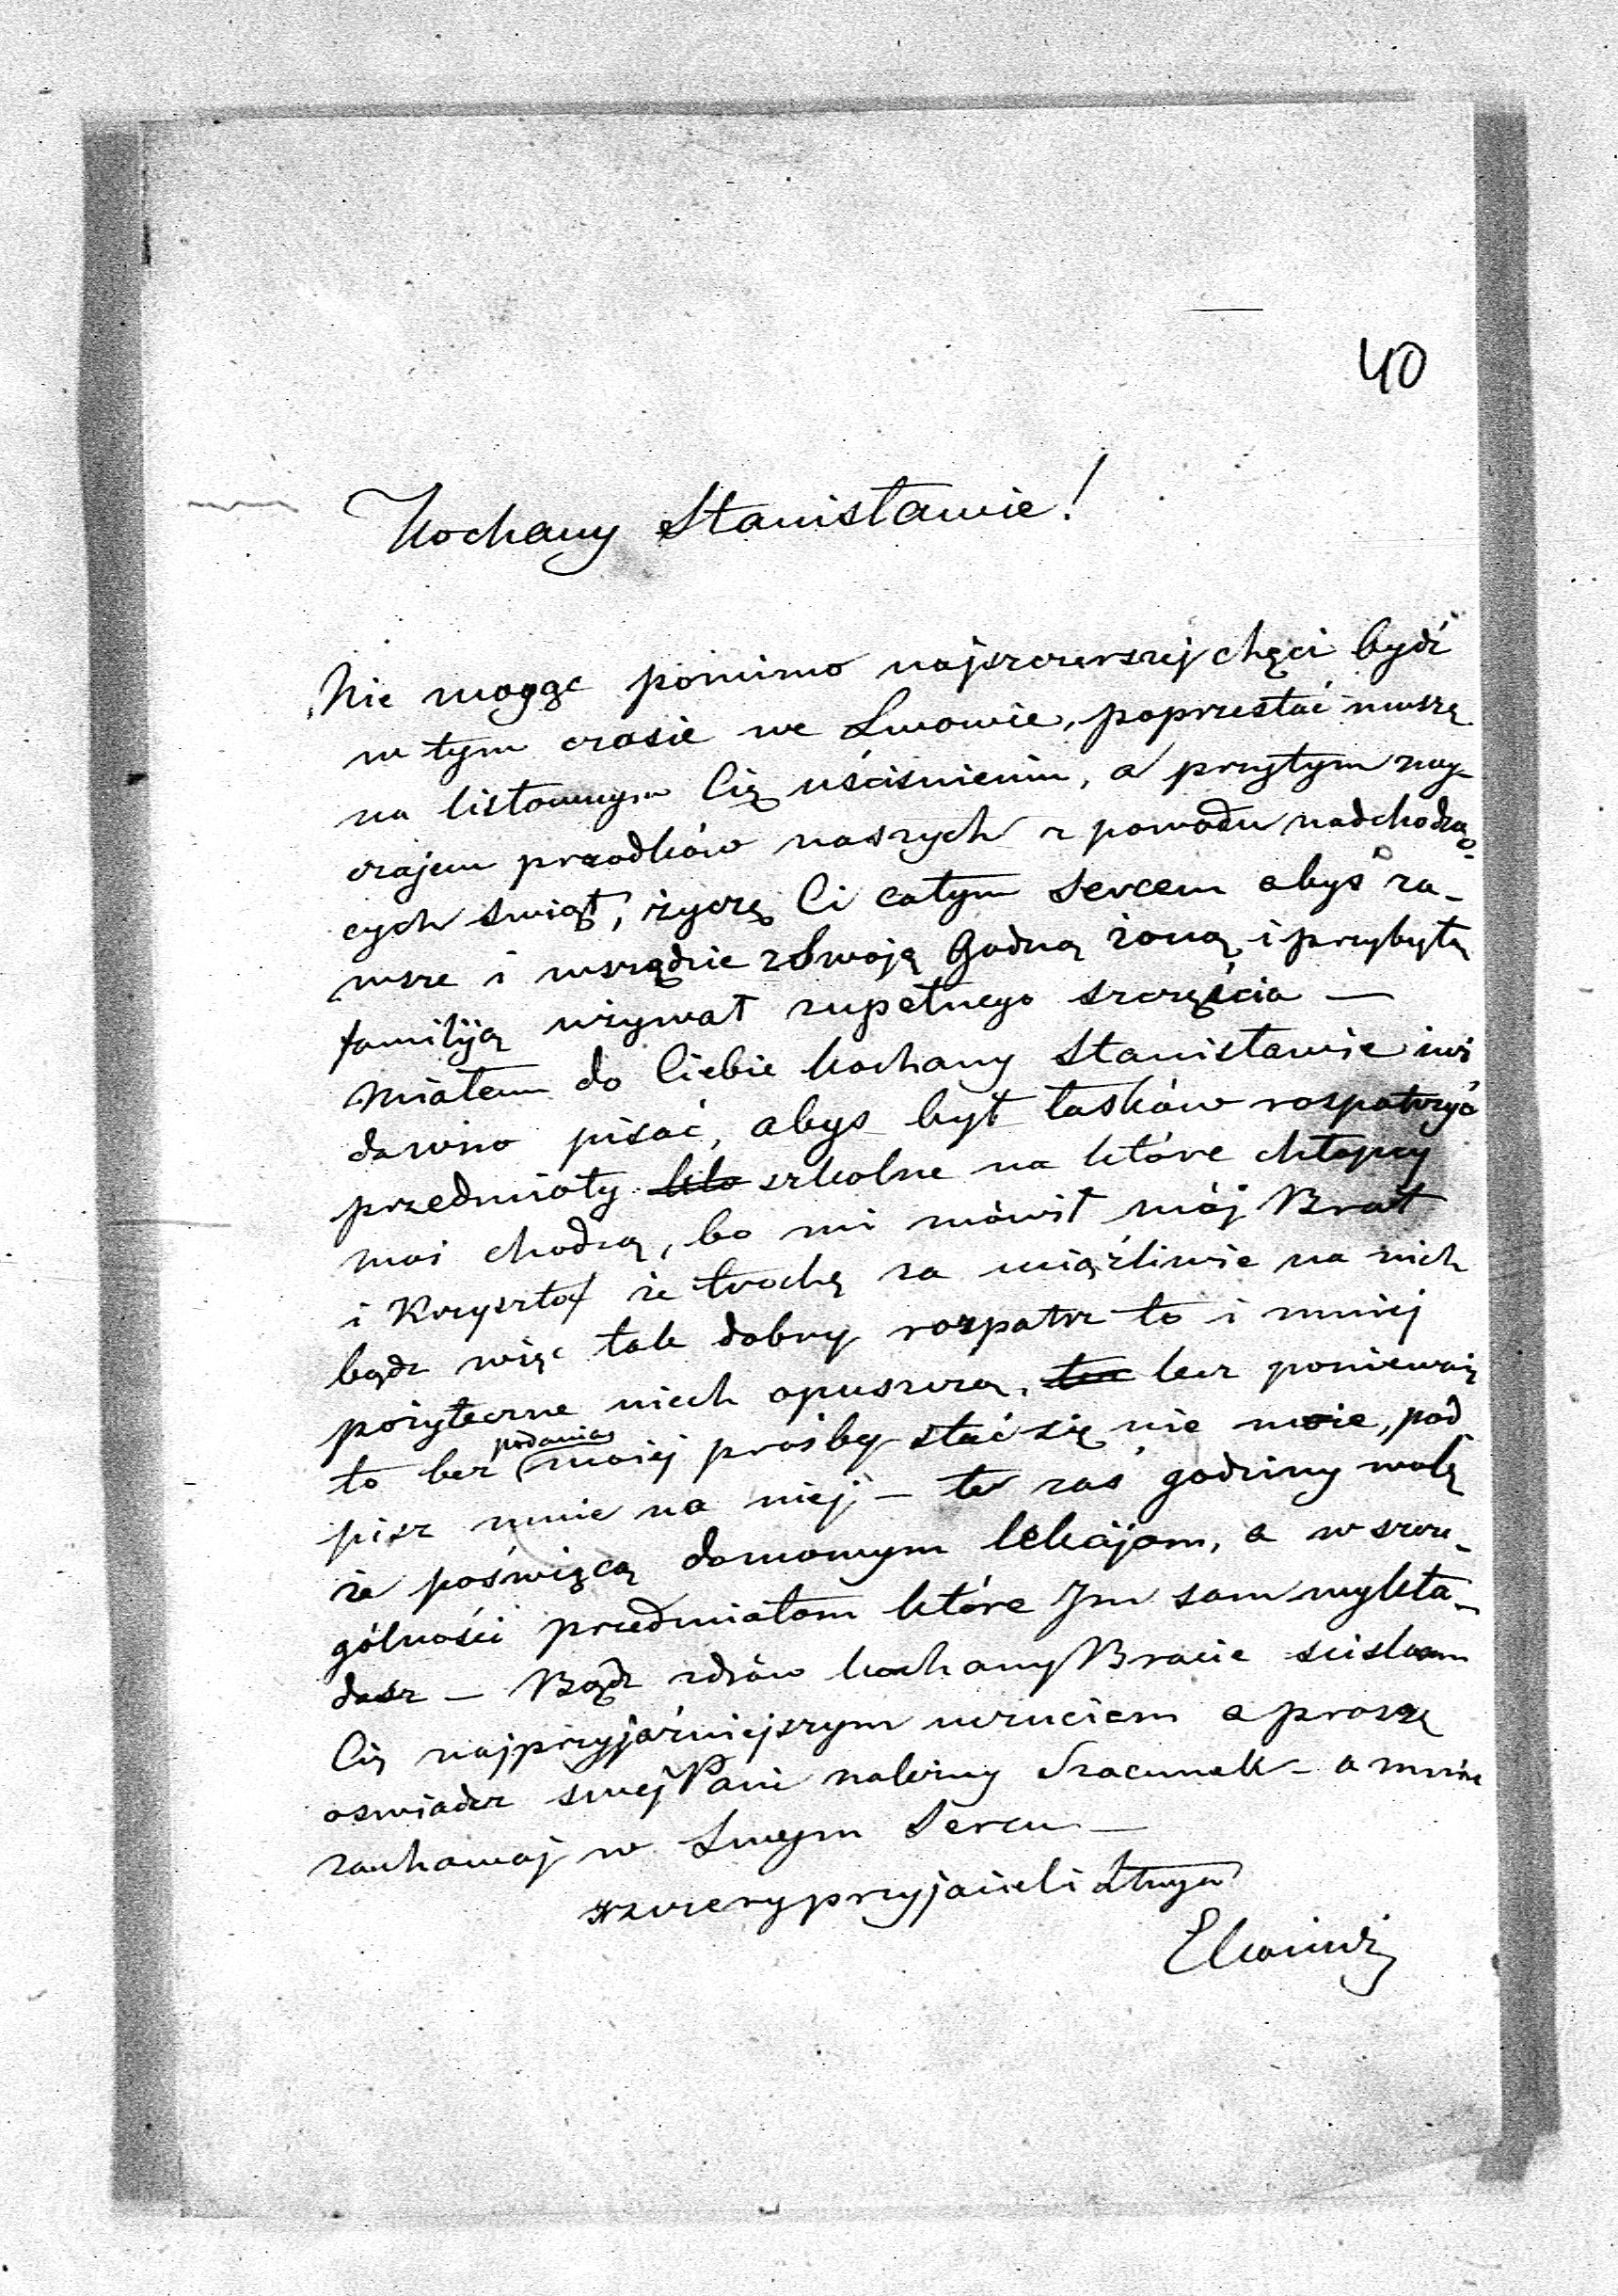 40
Kochany Stanisławie!
Nie mogąc pomimo najszczerszej chęci bydź
w tym czasie we Lwowie, poprzestać muszę
na listownym Cię uściśnieniu, a przytym zwy-
czajem przodków naszych z powodu nadchodzą-
cych świąt, życzę Ci całym sercem abyś za-
wsze i wszędzie z Swoją Godną żoną i przybyłą
familiją używał zupełnego szczęścia —
Miałem do Ciebie kochany Stanisławie już
dawno pisać, abyś był łaskaw rozpatrzyć
przedmioty szkolne na które chłopcy
moi chodzą, bo mi mówił mój Brat
i Krzysztof że trochę za uciążliwie na nich
bądz więc tak dobry rozpatrz to i mniej
pożyteczne niech opuszczą, lecz ponieważ
to bez podania mojej prośby stać się nie może, pod
pisz mnie na niej — te zaś godziny wolę
że poświęcą domowym lekcjom, a w szcze-
gólności przedmiotom które Im sam wykła-
dasz — Bądz zdrów kochany Bracie ściskam
Cię najprzyjaźniejszym uczuciem a proszę
oswiadcz swej Pani należny Szacunek — a mnie
zachowaj w Swym Sercu —
szczery przyjaciel i